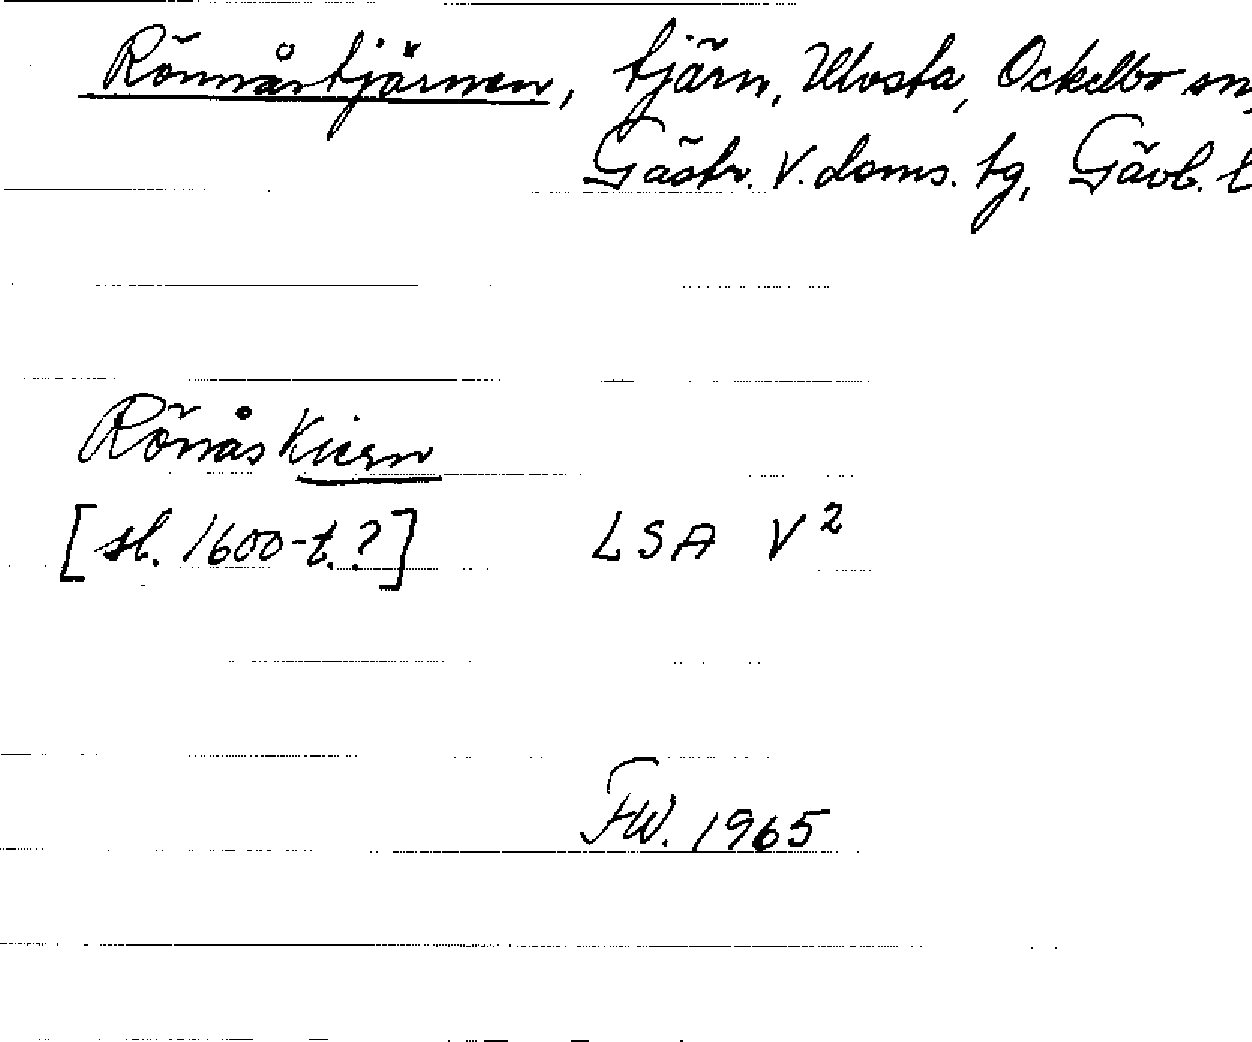 Rönnåstjärnen, tjärn, Ulvsta, Ockelbo sn,
Gästr. V. doms. tg, Gävb. l
Rönås Kiern
[sl. 1600-t.?] LSA V²
FW. 1965